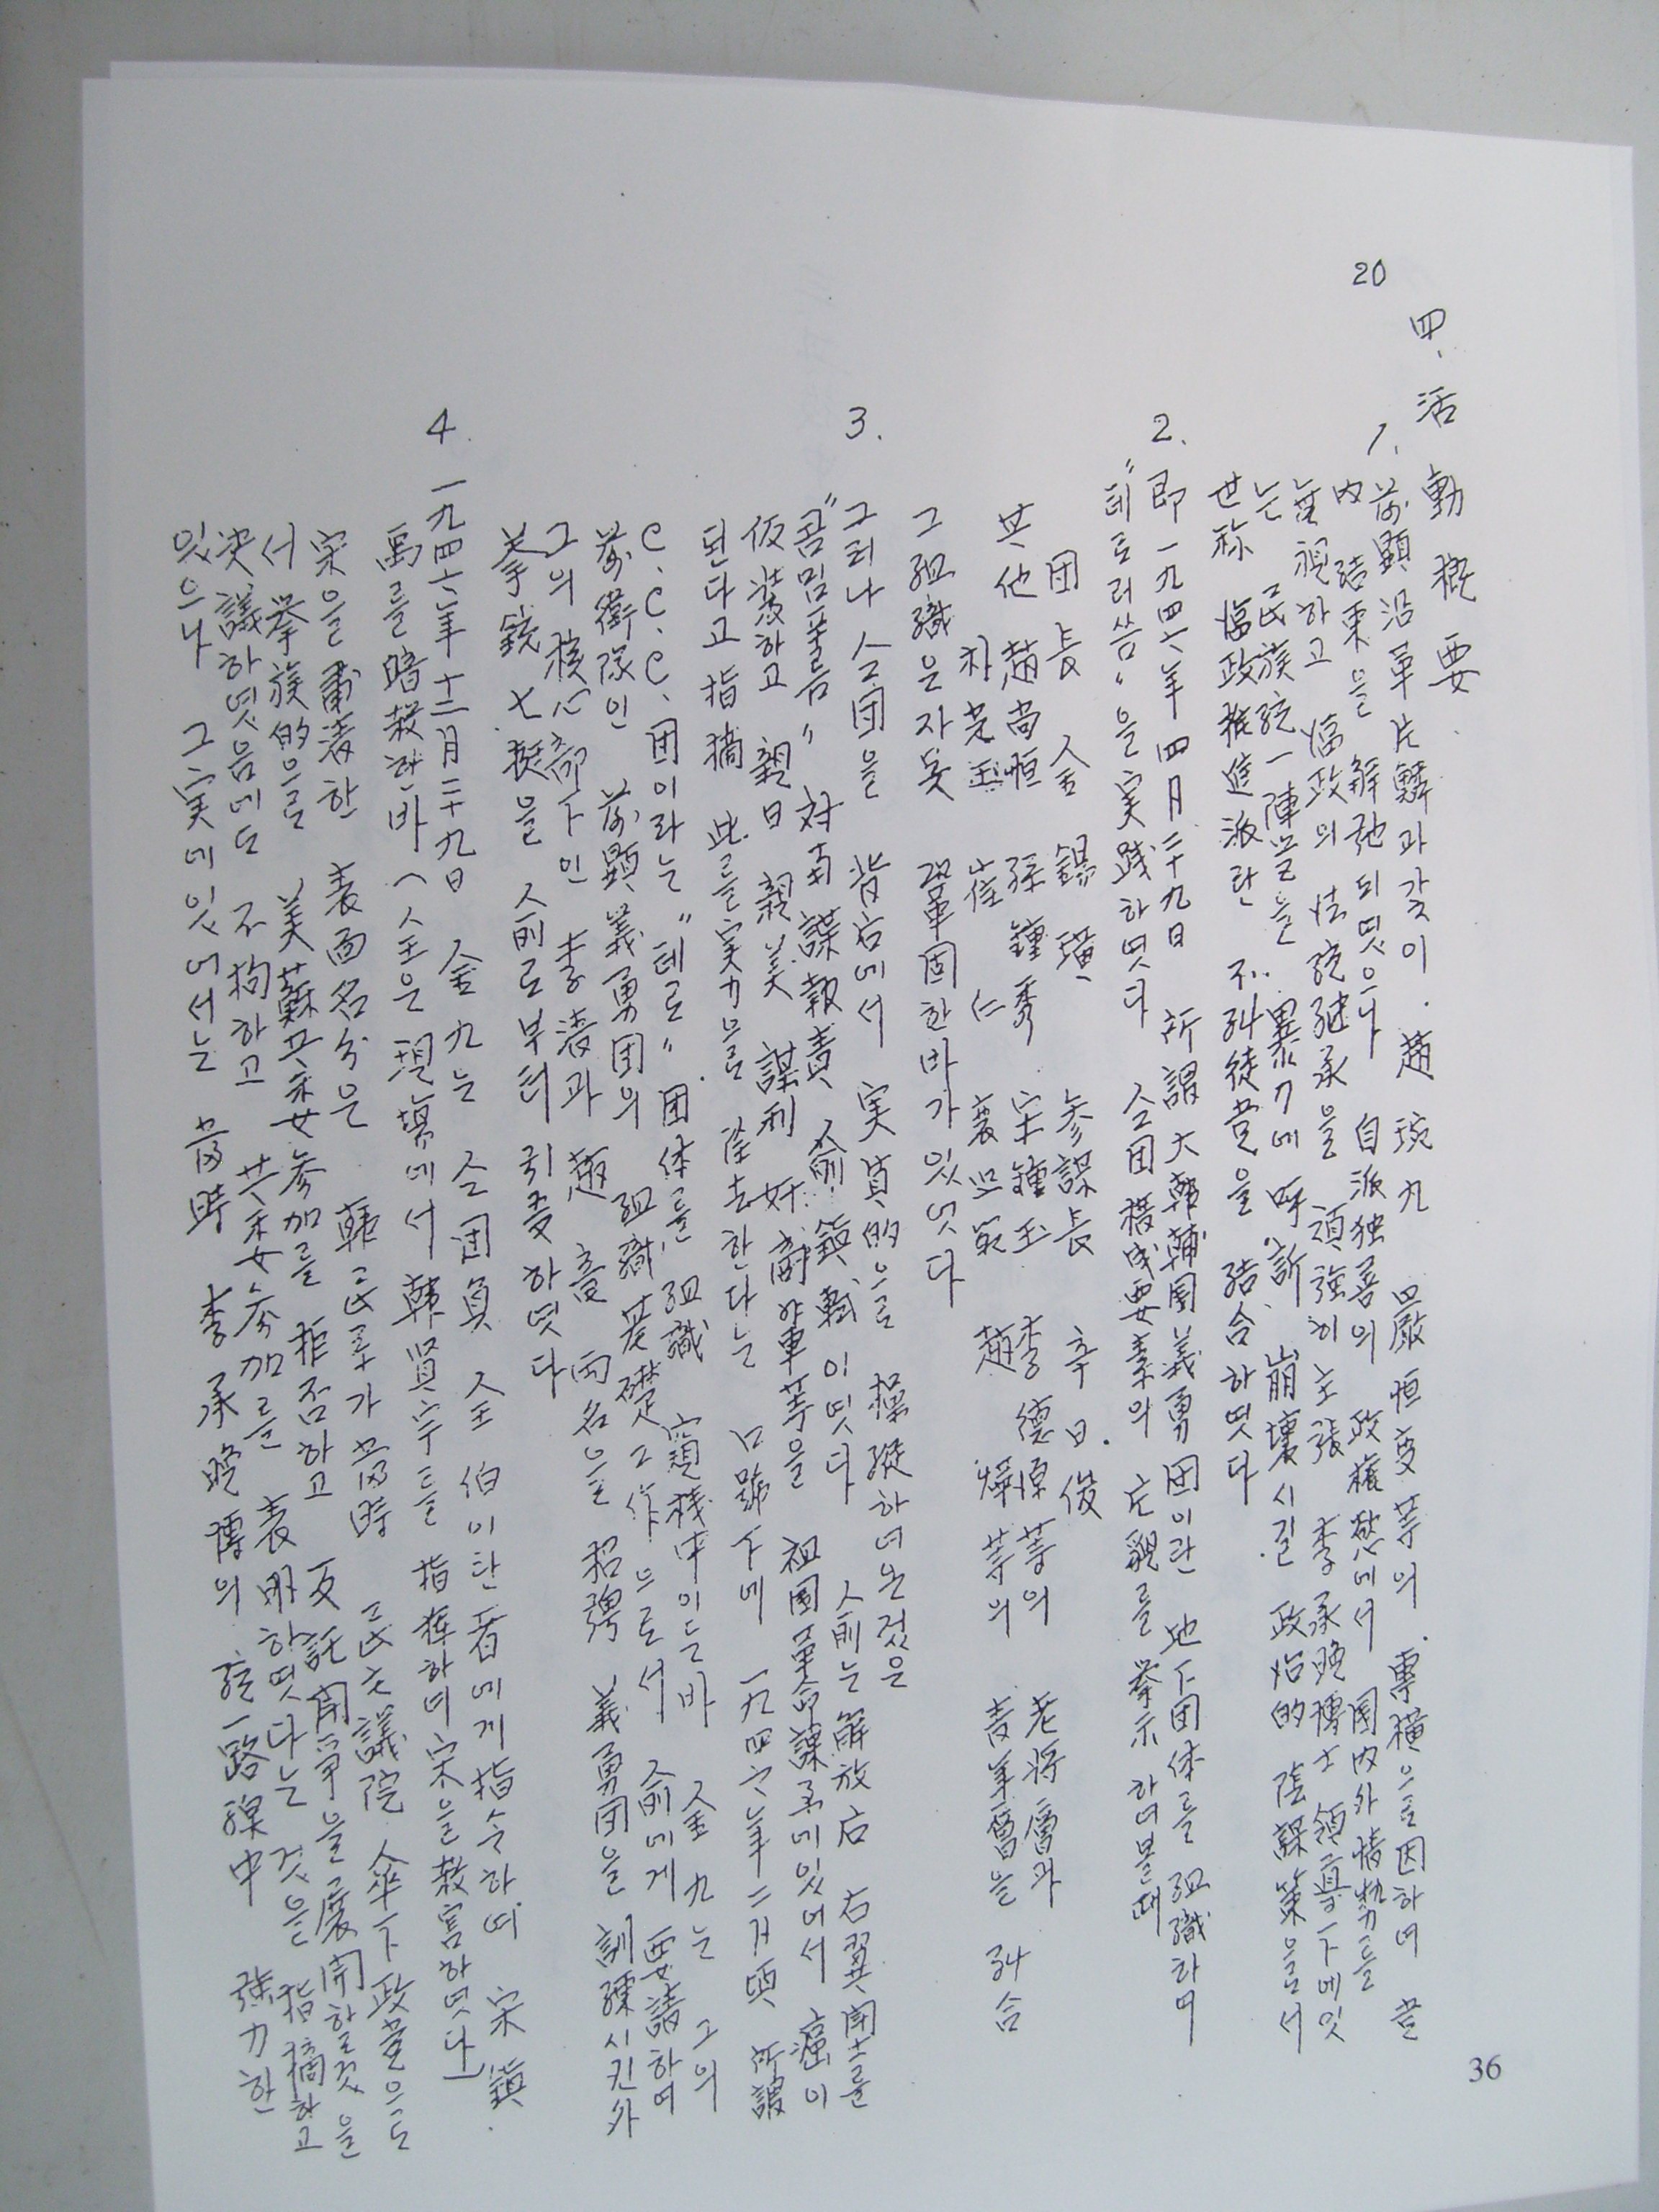 20
四、活動概要
1. 前顯沿革片鱗과같이. 趙琬九 嚴恒燮 等의 專横으로因하여 黨
内 結束을 解弛되엿으나 自派独善의 政権慾에서 国内外情勢를
無視하고 臨政의 法統継承을 頑強히主張 李承晩博士 領導下에잇
는 民族統一陣営을 暴力에 呼訴 崩壊시길 政治的 陰謀策을圖서
世称 臨政推進派란 不 徒党을 結合하엿다
2. 即 一九四六年 四月二十九日 所謂 大韓輔国義勇団이란 地下団体를 組織하여
"테로러씀"을 実践하엿다 仝団 構成要素의 片貌를 挙示하여볼때
団長 金錫璜 参謀長 辛日俊
其他 趙尚恒 孫鍾秀 宋鍾玉 李德源等의 老将層과
朴芝玉 崔仁 襄 範 趙燁等의 青年層을 糾合
그組織은자못 鞏固한바가잇엇다
3. 그러나 仝団을 背后에서 実質的으로 操縦하여온것은
"콤밈폼" 対南謀報責 兪鎮 이엿다 兪는 解放后 右翼闘士를
仮装하고 親日 親美 謀利 奸商 軍等을 祖国革命課 에잇어서 癌이
된다고 指摘 此를実力으로 除去한다는 口號下에 一九四六年 二月頃 所謂
C.C.C.団이라는 "테로" 団体를 組織 窺機中이든바 金九는 그의
前衛隊인 前顯義勇団의 組織基礎工作으로서 兪에게 要請하여
그의 核心部下인 李 과 趙 両名을 招聘 義勇団을 訓練시킨外
拳銃 七挺을 兪로부터 引受하엿다
4. 一九四六年 十二月二十九日 金九는 仝団員 全柏이란者에게指令하며 宋鎮
禹를暗殺한바 (全은 現場에서 韓賢宇를 指揮하며宋을殺害하엿다)
宋을 粛清한 表面名分은 韓民党가 當時 民主議院 傘下政党으로
서 挙族的으로 美蘇共委参加를 拒否하고 反託闘争을展開할것을
決議하엿음에도 不拘하고 共委参加를 表明하엿다는 것을 指摘하고
잇으나 그実에잇어서는 當時 李承晩博의 統一路線中 強力한
36